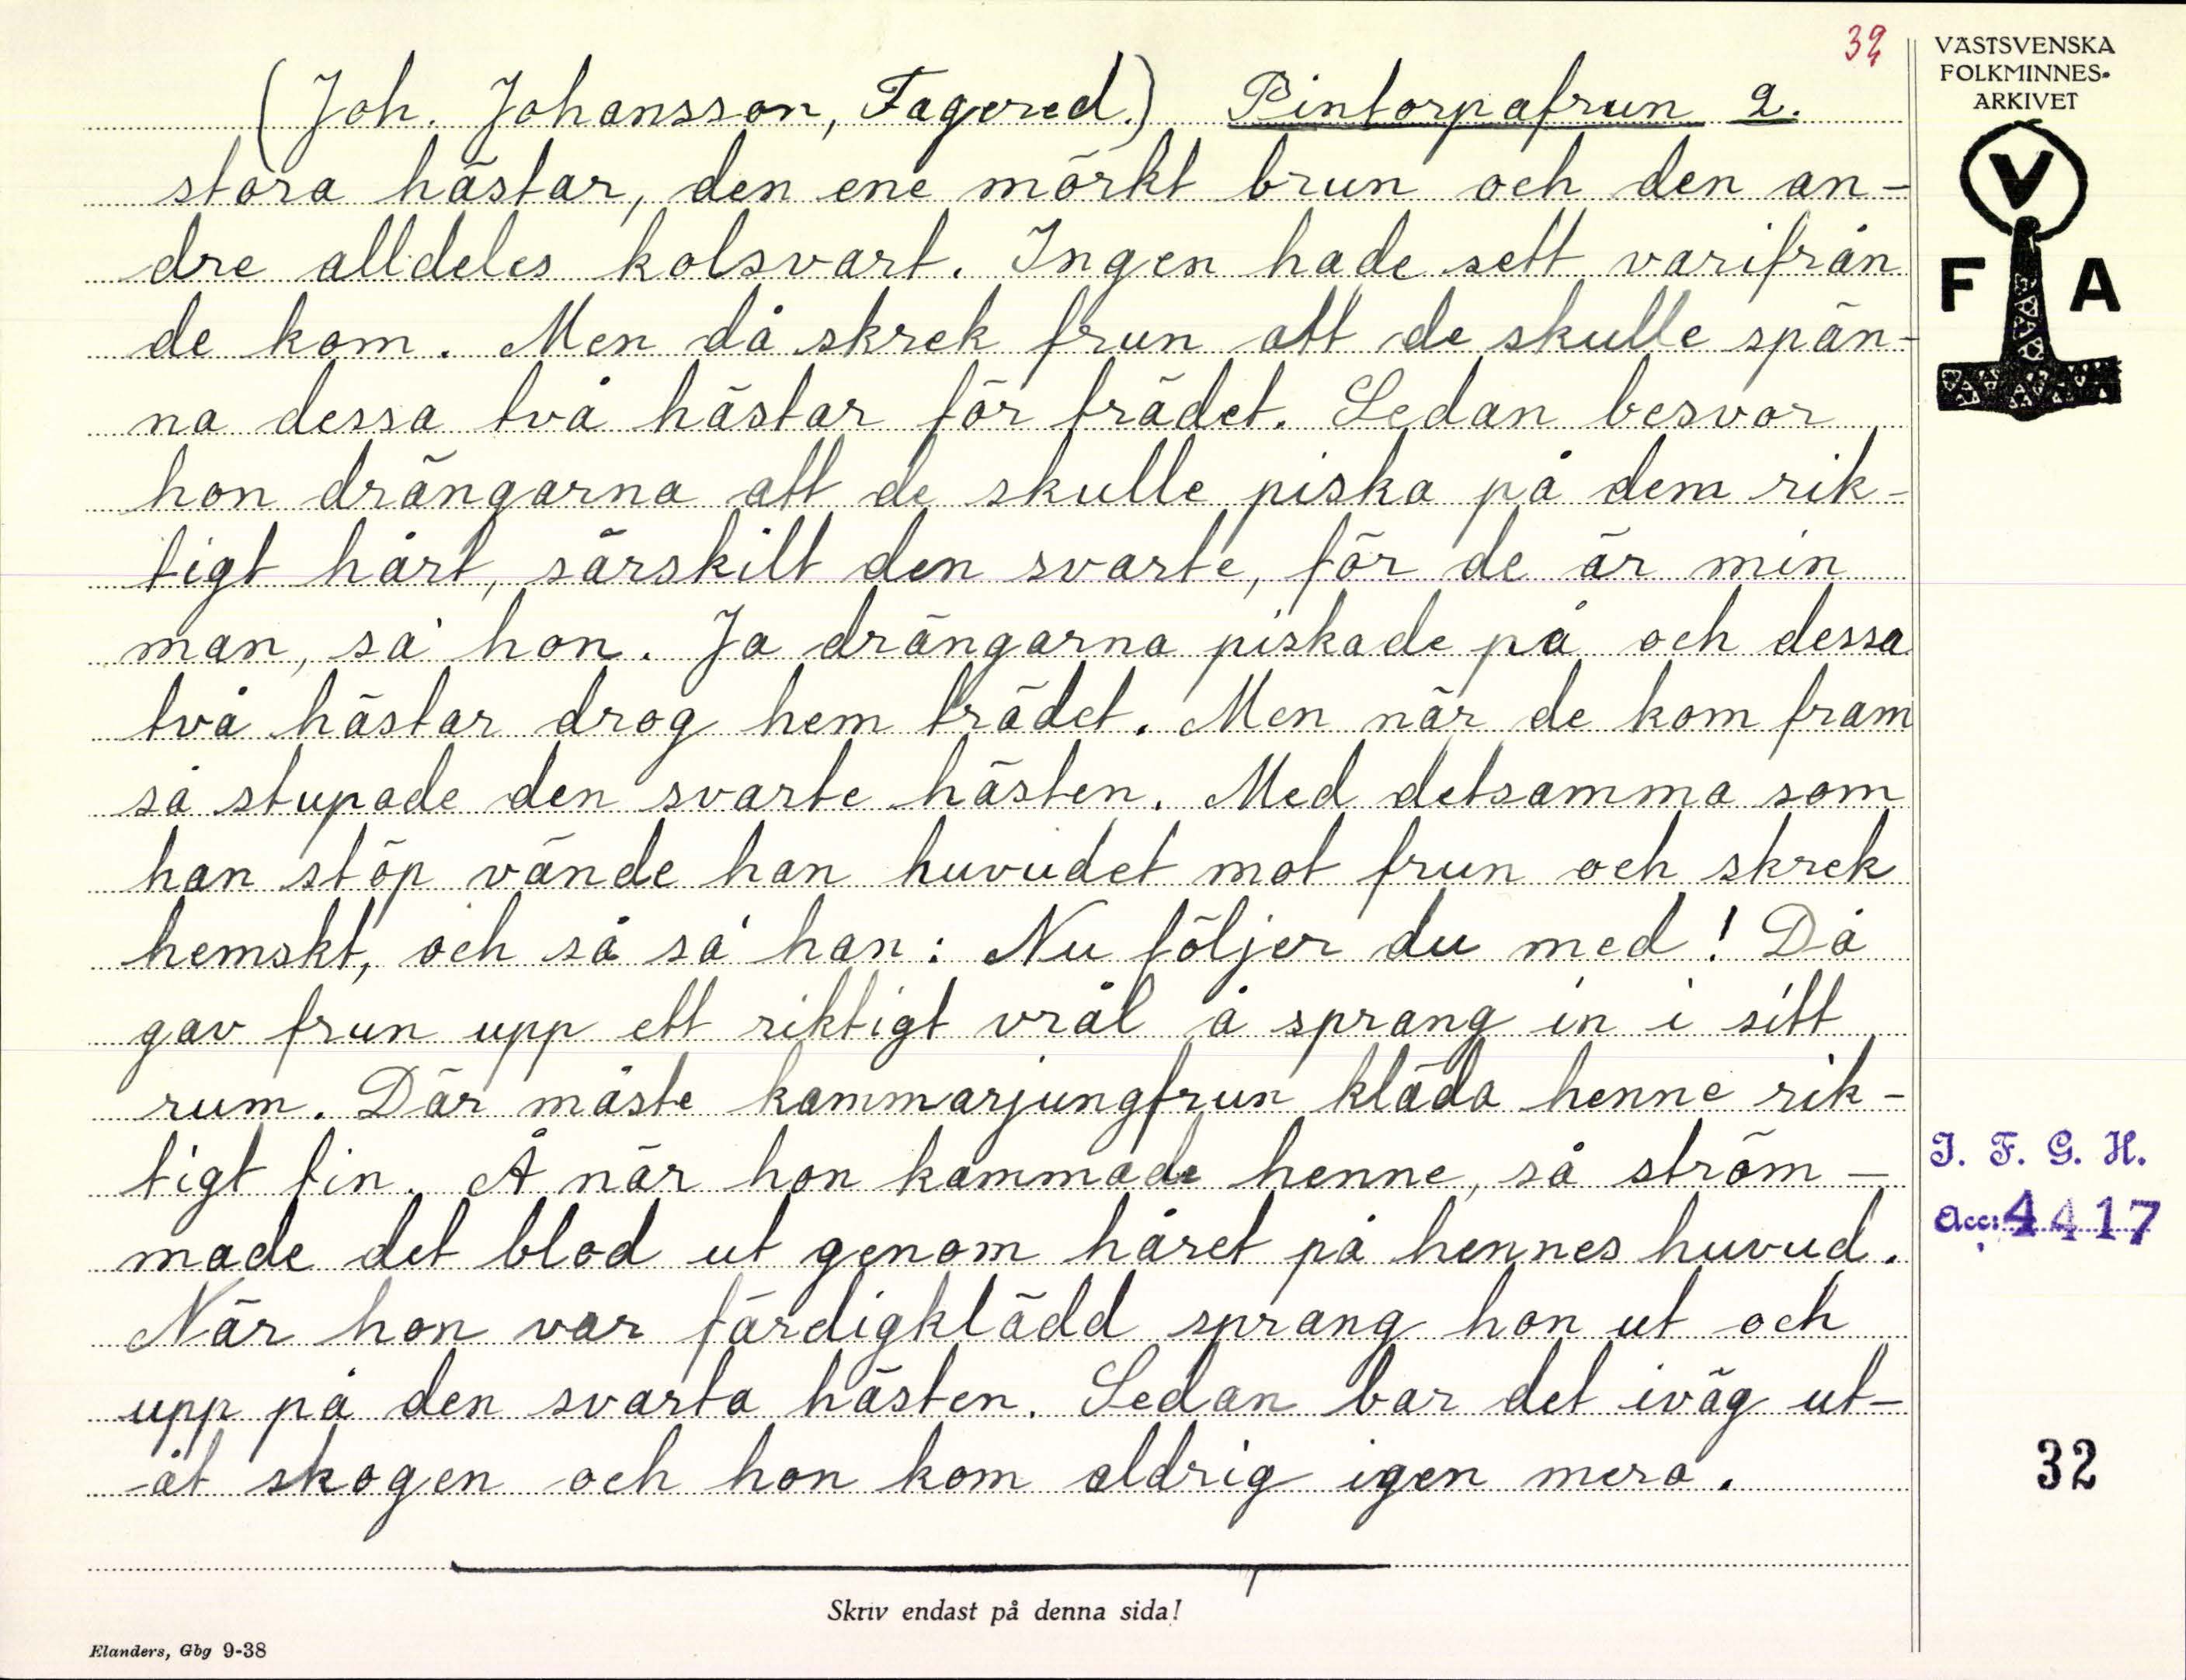 32
VÄSTSVENSKA
FOLKMINNES-
ARKIVET
V
F A
(Joh. Johansson, Fagered.) Pintorpafrun 2.
stora hästar, den ene mörkt brun och den an-
dre alldeles kolsvart. Ingen hade sett varifrån
de kom. Men då skrek frun att de skulle spän-
na dessa två hästar för trädet. Sedan besvor
hon drängarna att de skulle piska på dem rik-
tigt hårt, särskilt den svarte, för de är min
man, sa' hon. Ja drängarna piskade på och dessa
två hästar drog hem trädet. Men när de kom fram
så stupade den svarte hästen. Med detsamma som
han stöp vände han huvudet mot frun och skrek
hemskt, och så sa' han: Nu följer du med! Då
gav frun upp ett riktigt vrål å sprang in i sitt
rum. Där måste kammarjungfrun kläda henne rik-
tigt fin. Å när hon kammade henne, så ström-
made det blod ut genom håret på hennes huvud.
När hon var färdigklädd sprang hon ut och
upp på den svarta hästen. Sedan bar det iväg ut-
åt skogen och hon kom aldrig igen mera.
I. F. G. H.
Acc: 4417
32
Skriv endast på denna sida!
Elanders, Gbg 9-38